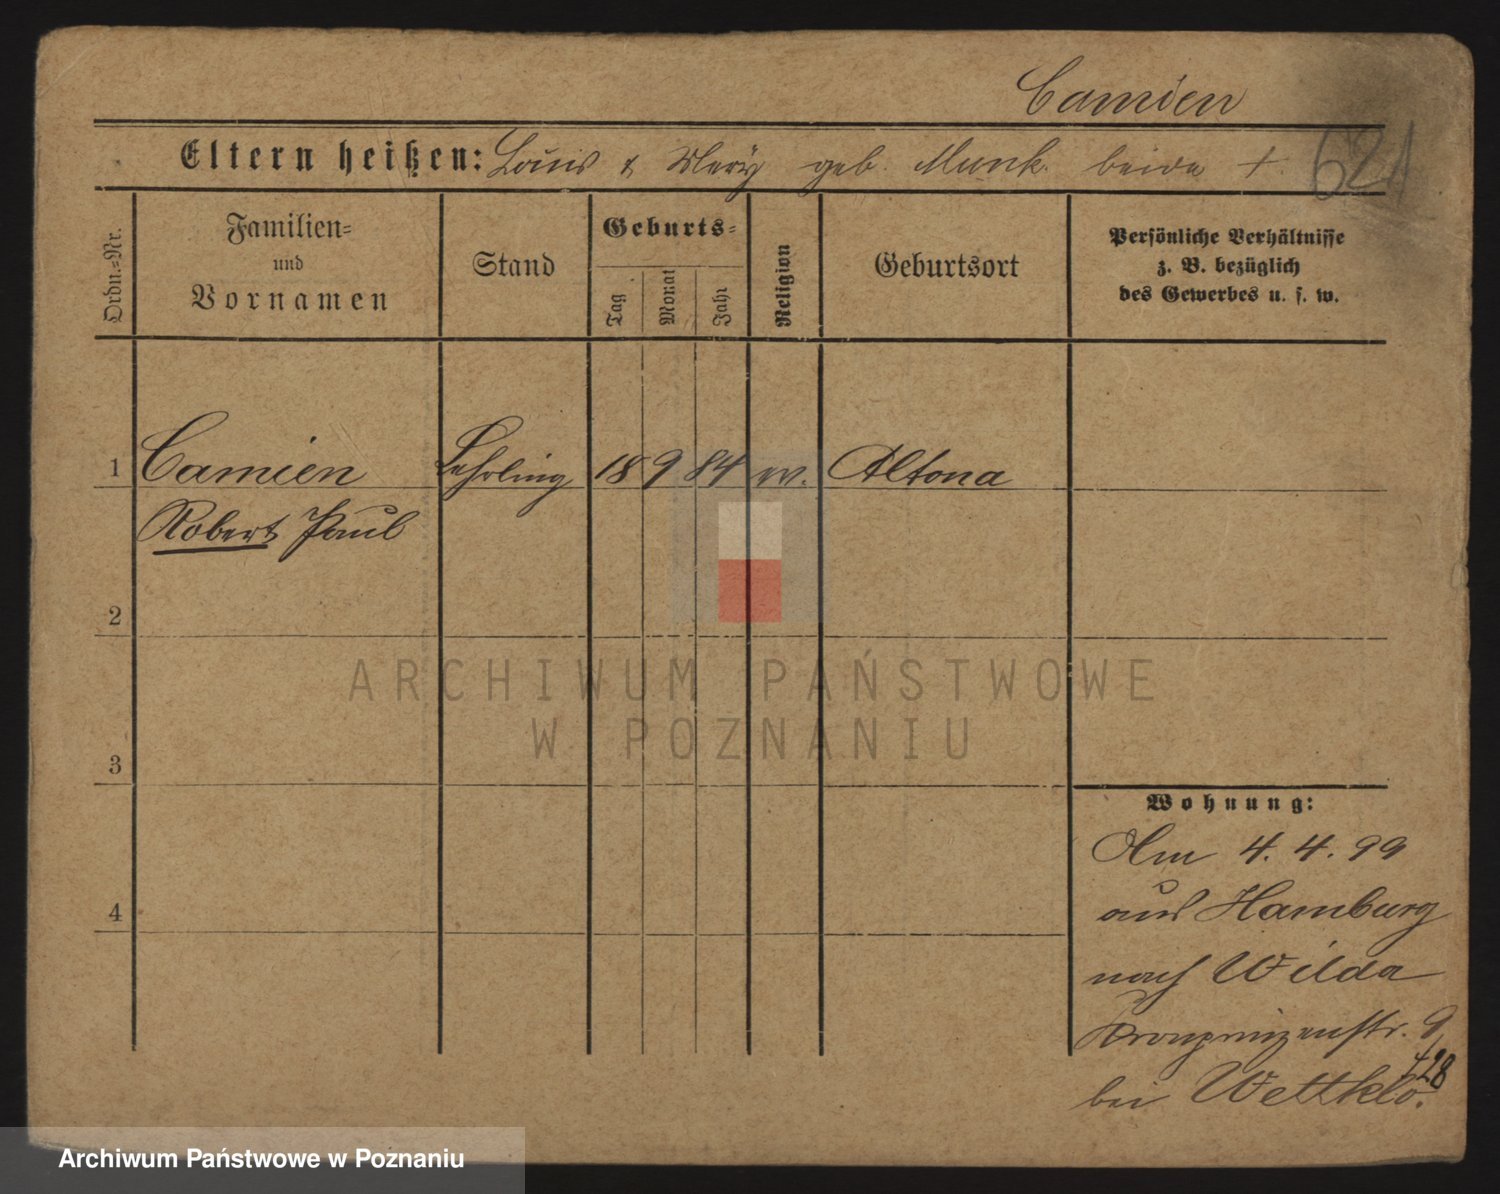 Camien
Eltern heißen: Louis & Mary geb. Munk. beide †.
621
Ordn.-Nr.
Familien-
und
Vornamen
Stand
Geburts-
Tag
Monat
Jahr
Religion
Geburtsort
Persönliche Verhältnisse
z. B. bezüglich
des Gewerbes u. s. w.
1 Camien Lehrling 18 9 84 ev. Altona
Robert Paul
2
3
4
ARCHIWUM PAŃSTWOWE
W POZNANIU
Wohnung:
Am 4. 4. 99
aus Hamburg
nach Wilda
Kronprinzenstr. 9
128
bei
Archiwum Państwowe w Poznaniu